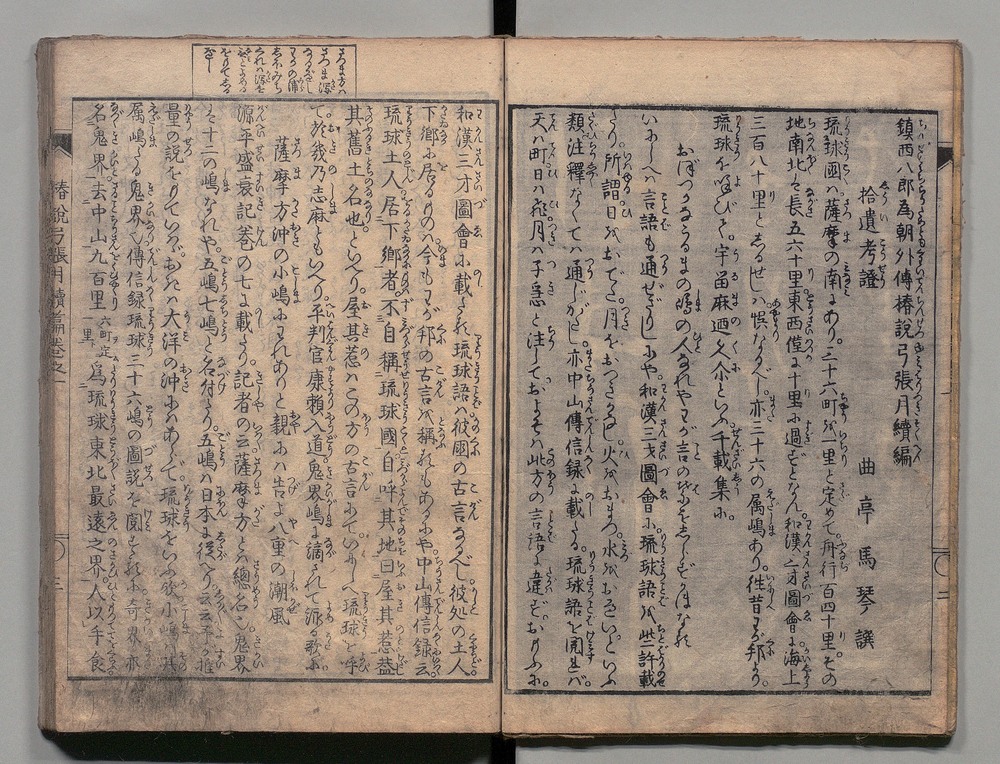 鎮西八郎為朝外傳椿説弓張月續編
拾遺考證
曲亭馬琴譔
琉球國ハ薩摩の南にあり。三十六町を一里と定めて。舟行百四十里。その
地南北に長五六十里東西僅に十里に過ずとなん。和漢三才圖會に海上
三百八十里としるせしハ悞なるべし。亦三十六の属嶋あり。往昔わが邦より。
琉球をよびて。宇畄麻迺久尓といふ。千載集に。
おぼつかなうるまの嶋の人なれやわが言の葉をしらずがほなる
いにしへハ言語も通ぜざりしにや和漢三才圖會に。琉球語を此許載
たり。所謂日をおでだ。月をおつきかなし火をおまつ。水をおへいといふ
類注釋なくてハ通じがたし。亦中山傳信録に載たる。琉球語を閲すれバ。
天ハ町日ハ飛月ハ子急と注しておよそハ此方の言語に違ず。おもふに。
和漢三才圖會に載たる。琉球語ハ彼國の古言なるべし彼処の土人
下郷に居るものハ今もわが邦の古言を稱るもあるにや中山傳信録云
琉球土人居下郷者。不自稱琉球國。自呼其地曰屋其惹。蓋
其舊土名也。といへり。屋其惹ハこの方の古言にて。いにしへ琉球を乎
て於幾乃志麻ともいへり。平判官康頼入道。鬼界嶋に謫されて詠る歌に。
薩摩方沖の小嶋にわれありと親にハ告よ八重の潮風
源平盛衰記巻の七に載たり。記者の云薩摩方とハ總名也。鬼界
ハ十二の嶋なれや。五嶋七嶋と名付たり。五嶋ハ日本に從へり云云
量の説をもていふ。おきハ大洋の沖にハあらで琉球をいふ歟小嶋ハ其
属嶋たる鬼界也。傳信録琉球三十六嶋の圖説を閲するに奇界亦
名鬼界。去中山九百里。六町定一里。為琉球東北最遠之界。人以手食
椿説弓張月續編巻之一
二
三
さつま方ハ